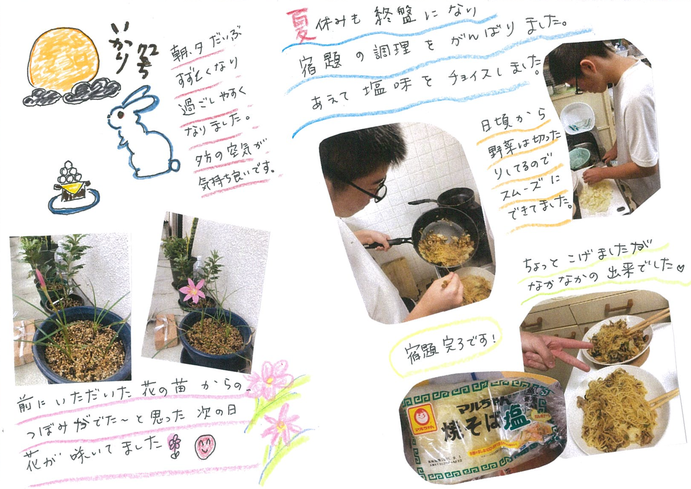 いかり
朝、夕だいぶ
すずしくなり
過ごしやすく
なりました。
夕方の空気が
気持ち良いです。
夏休みも終盤になり
宿題の調理をがんばりました。
あえて塩味をチョイスしました。
日頃から
野菜は切った
りしてるので
スムーズに
できてました。
ちょっとこげましたが
なかなかの出来でした♡
宿題完了です!
マルちゃん
焼そば塩
前にいただいた花の苗からの、
つぼみがでた〜と思った次の日
花が咲いてました